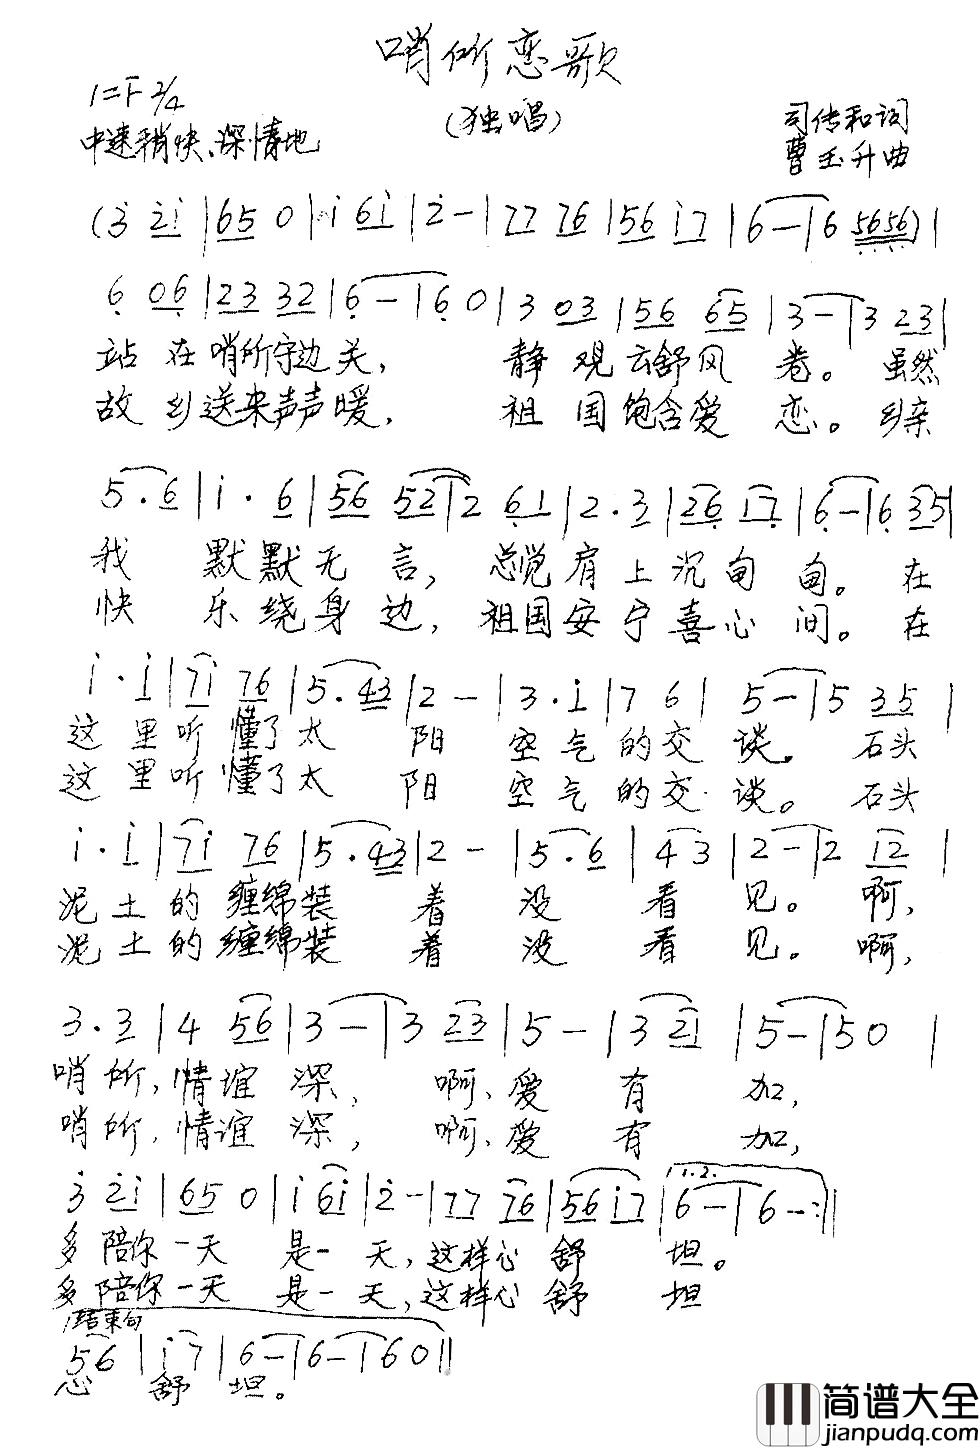 哨所恋歌
(独唱)
1=F 2/4
中速稍快、深情地
司传和词
曹玉升曲
(3̇ 2̇1̇ | 65 0 | 1̇ 61̇ | 2̇ - | 77 76 | 56 1̇7 | 6 - | 6 5656) |
6 06 | 23 32 | 6 - | 6 0 | 3 03 | 56 65 | 3 - | 3 23 |
站在哨所守边关,静观云舒风卷。虽然
故乡送来声声暖,祖国饱含爱恋。乡亲
5. 6 | 1̇. 6 | 56 52 | 2 61 | 2. 3 | 26 17 | 6 - | 6 35 |
我默默无言,总觉肩上沉甸甸。在
快乐绕身边,祖国安宁喜心间。在
1̇. 1̇ | 71̇ 76 | 5. 43 | 2 - | 3. 1̇ | 7 6 | 5 - | 5 35 |
这里听懂了太阳空气的交谈。石头
这里听懂了太阳空气的交谈。石头
1̇. 1̇ | 71̇ 76 | 5. 43 | 2 - | 5. 6 | 4 3 | 2 - | 2 12 |
泥土的缠绵装着没看见。啊,
泥土的缠绵装着没看见。啊,
3. 3 | 4 56 | 3 - | 3 23 | 5 - | 3 21 | 5 - | 5 0 |
哨所,情谊深,啊、爱有加,
哨所,情谊深,啊、爱有加,
3̇ 2̇1̇ | 65 0 | 1̇ 61̇ | 2̇ - | 77 76 | 56 1̇7 | 1.2. 6 - | 6 - :||
多陪你一天是一天,这样心舒坦。
多陪你一天是一天,这样心舒坦
结束句
56 | 1̇ 7 | 6 - | 6 - | 6 0 ||
心舒坦。
简谱大全
jianpudq.com